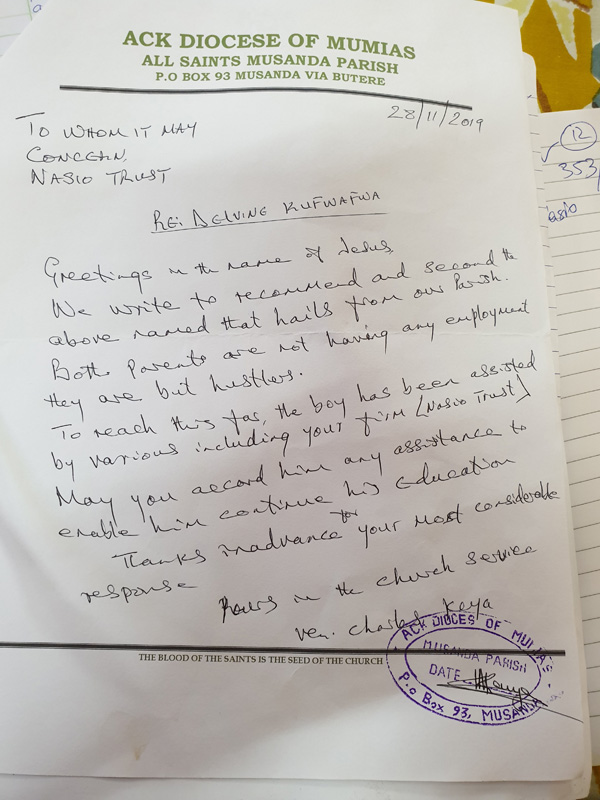 ACK DIOCESE OF MUMIAS
ALL SAINTS MUSANDA PARISH
P.O BOX 93 MUSANDA VIA BUTERE
28/11/2019
TO WHOM IT MAY
CONCERN,
NASIO TRUST
RE: DELVINE KUFWAFWA
Greetings in the name of Jesus
We write to recommend and second the
above named that hails from our Parish.
Both Parents are not having any employment
they are but hustlers.
To reach this far, the boy has been assisted
by various including your firm (Nasio Trust)
May you accord him any assistance to
enable him continue his Education
Thanks inadvance for your most considerable
response
Yours in the church service
Ven. Charles Keya
THE BLOOD OF THE SAINTS IS THE SEED OF THE CHURCH
ACK DIOCES OF MUMIAS
MUSANDA PARISH
DATE
P.o Box 93, MUSANDA
12
353/
asio